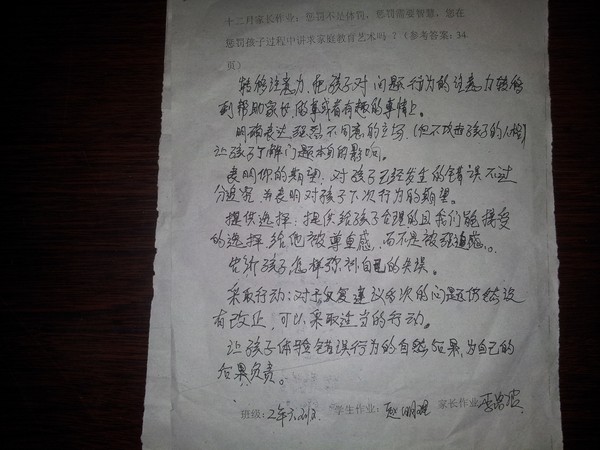 十二月家长作业：惩罚不是体罚，惩罚需要智慧，您在
惩罚孩子过程中讲求家庭教育艺术吗？（参考答案：34
页）
转移注意力，把孩子对问题行为的注意力转移
到帮助家长的事或者有趣的事情上。
明确表达强烈不同意的立场，（但不攻击孩子的人格）
让孩子了解问题本身的影响。
表明你的期望，对孩子已经发生的错误不过
分追究，并表明对孩子下次行为的期望。
提供选择：提供给孩子合理的且我们能接受
的选择，给他被尊重感，而不是被强迫感。
告诉孩子怎样弥补自己的失误。
采取行动：对于反复建议多次的问题仍然没
有改正，可以采取适当的行动。
让孩子体验错误行为的自然后果，为自己的
后果负责。
班级：2年六班 学生作业：赵明 家长作业：李